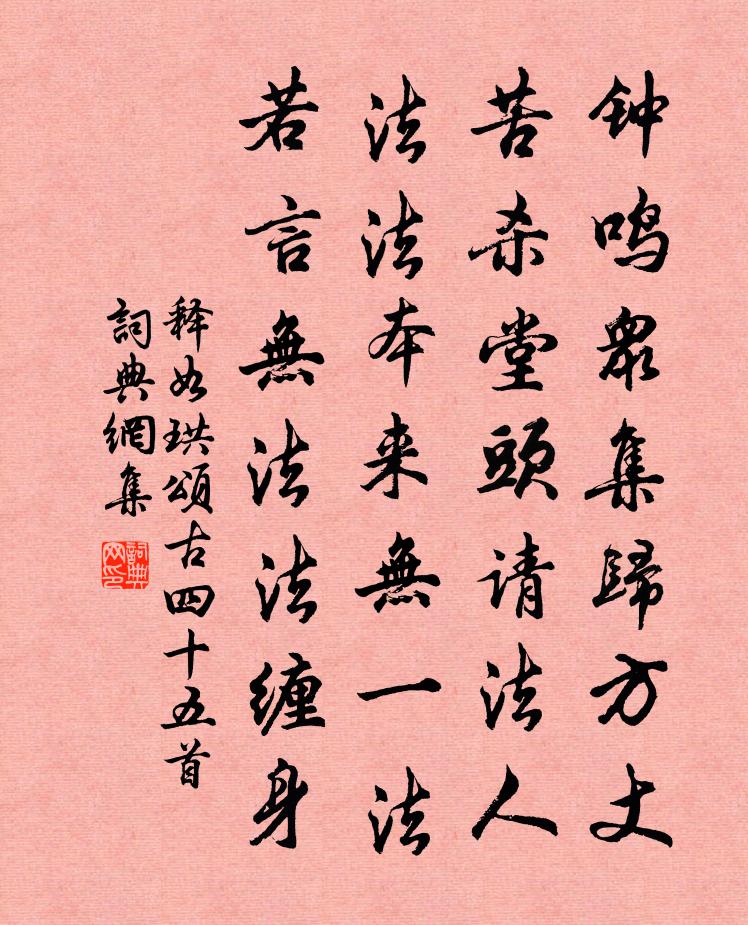 钟鸣眾集歸方丈
苦杀堂頭请法人
法法本来無一法
若言無法法缠身
释如珙頌古四十五首
詞典網集
詞典网印